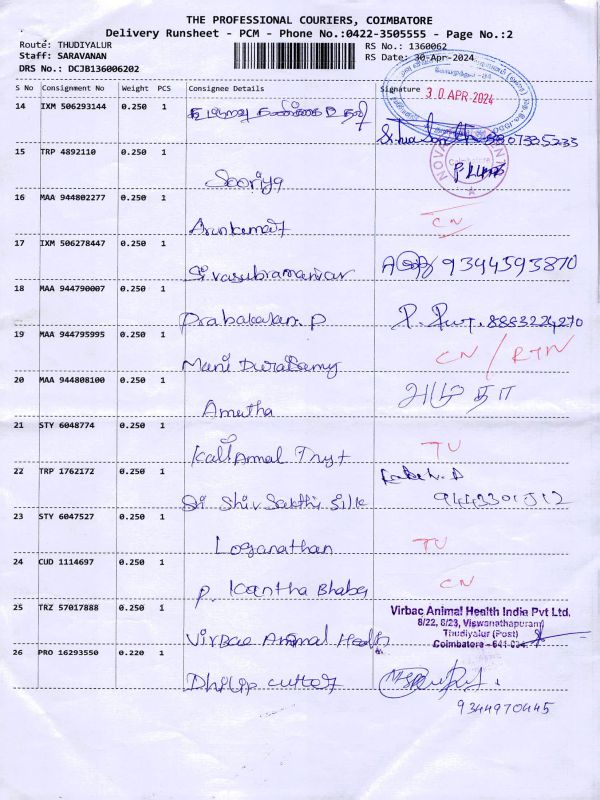 THE PROFESSIONAL COURIERS, COIMBATORE
Delivery Runsheet - PCM - Phone No.:0422-3505555 - Page No.:2
Route: THUDIYALUR
RS No.: 1360062
Staff: SARAVANAN
RS Date: 30-Apr-2024
DRS No.: DCJB136006202
S No Consignment No Weight PCS Consignee Details Signature
30 APR 2024
14 IXM 506293144 0.250 1
15 TRP 4892110 0.250 1
Sooriya
16 MAA 944802277 0.250 1 CN
Arunkumar
17 IXM 506278447 0.250 1
Sivasubramaniyar 9344593870
18 MAA 944790007 0.250 1
Prabakaran. P 8883224270
19 MAA 944795995 0.250 1 CN / RTN
Mani Duraisamy
20 MAA 944808100 0.250 1 அமுதா
Amutha
21 STY 6048774 0.250 1 TU
Kali Ammal Tryst
22 TRP 1762172 0.250 1
Sri Shiv Sakthi Silk
23 STY 6047527 0.250 1 TU
Loganathan
24 CUD 1114697 0.250 1 CN
P. Kantha Bhaba
25 TRZ 57017888 0.250 1
Virbac Animal Health India Pvt Ltd.
8/22, 8/23, Viswanathapuram
Thudiyalur (Post)
Coimbatore - 641 034.
Virbac Animal Health
26 PRO 16293550 0.220 1
Dhilip cutter
9344970445